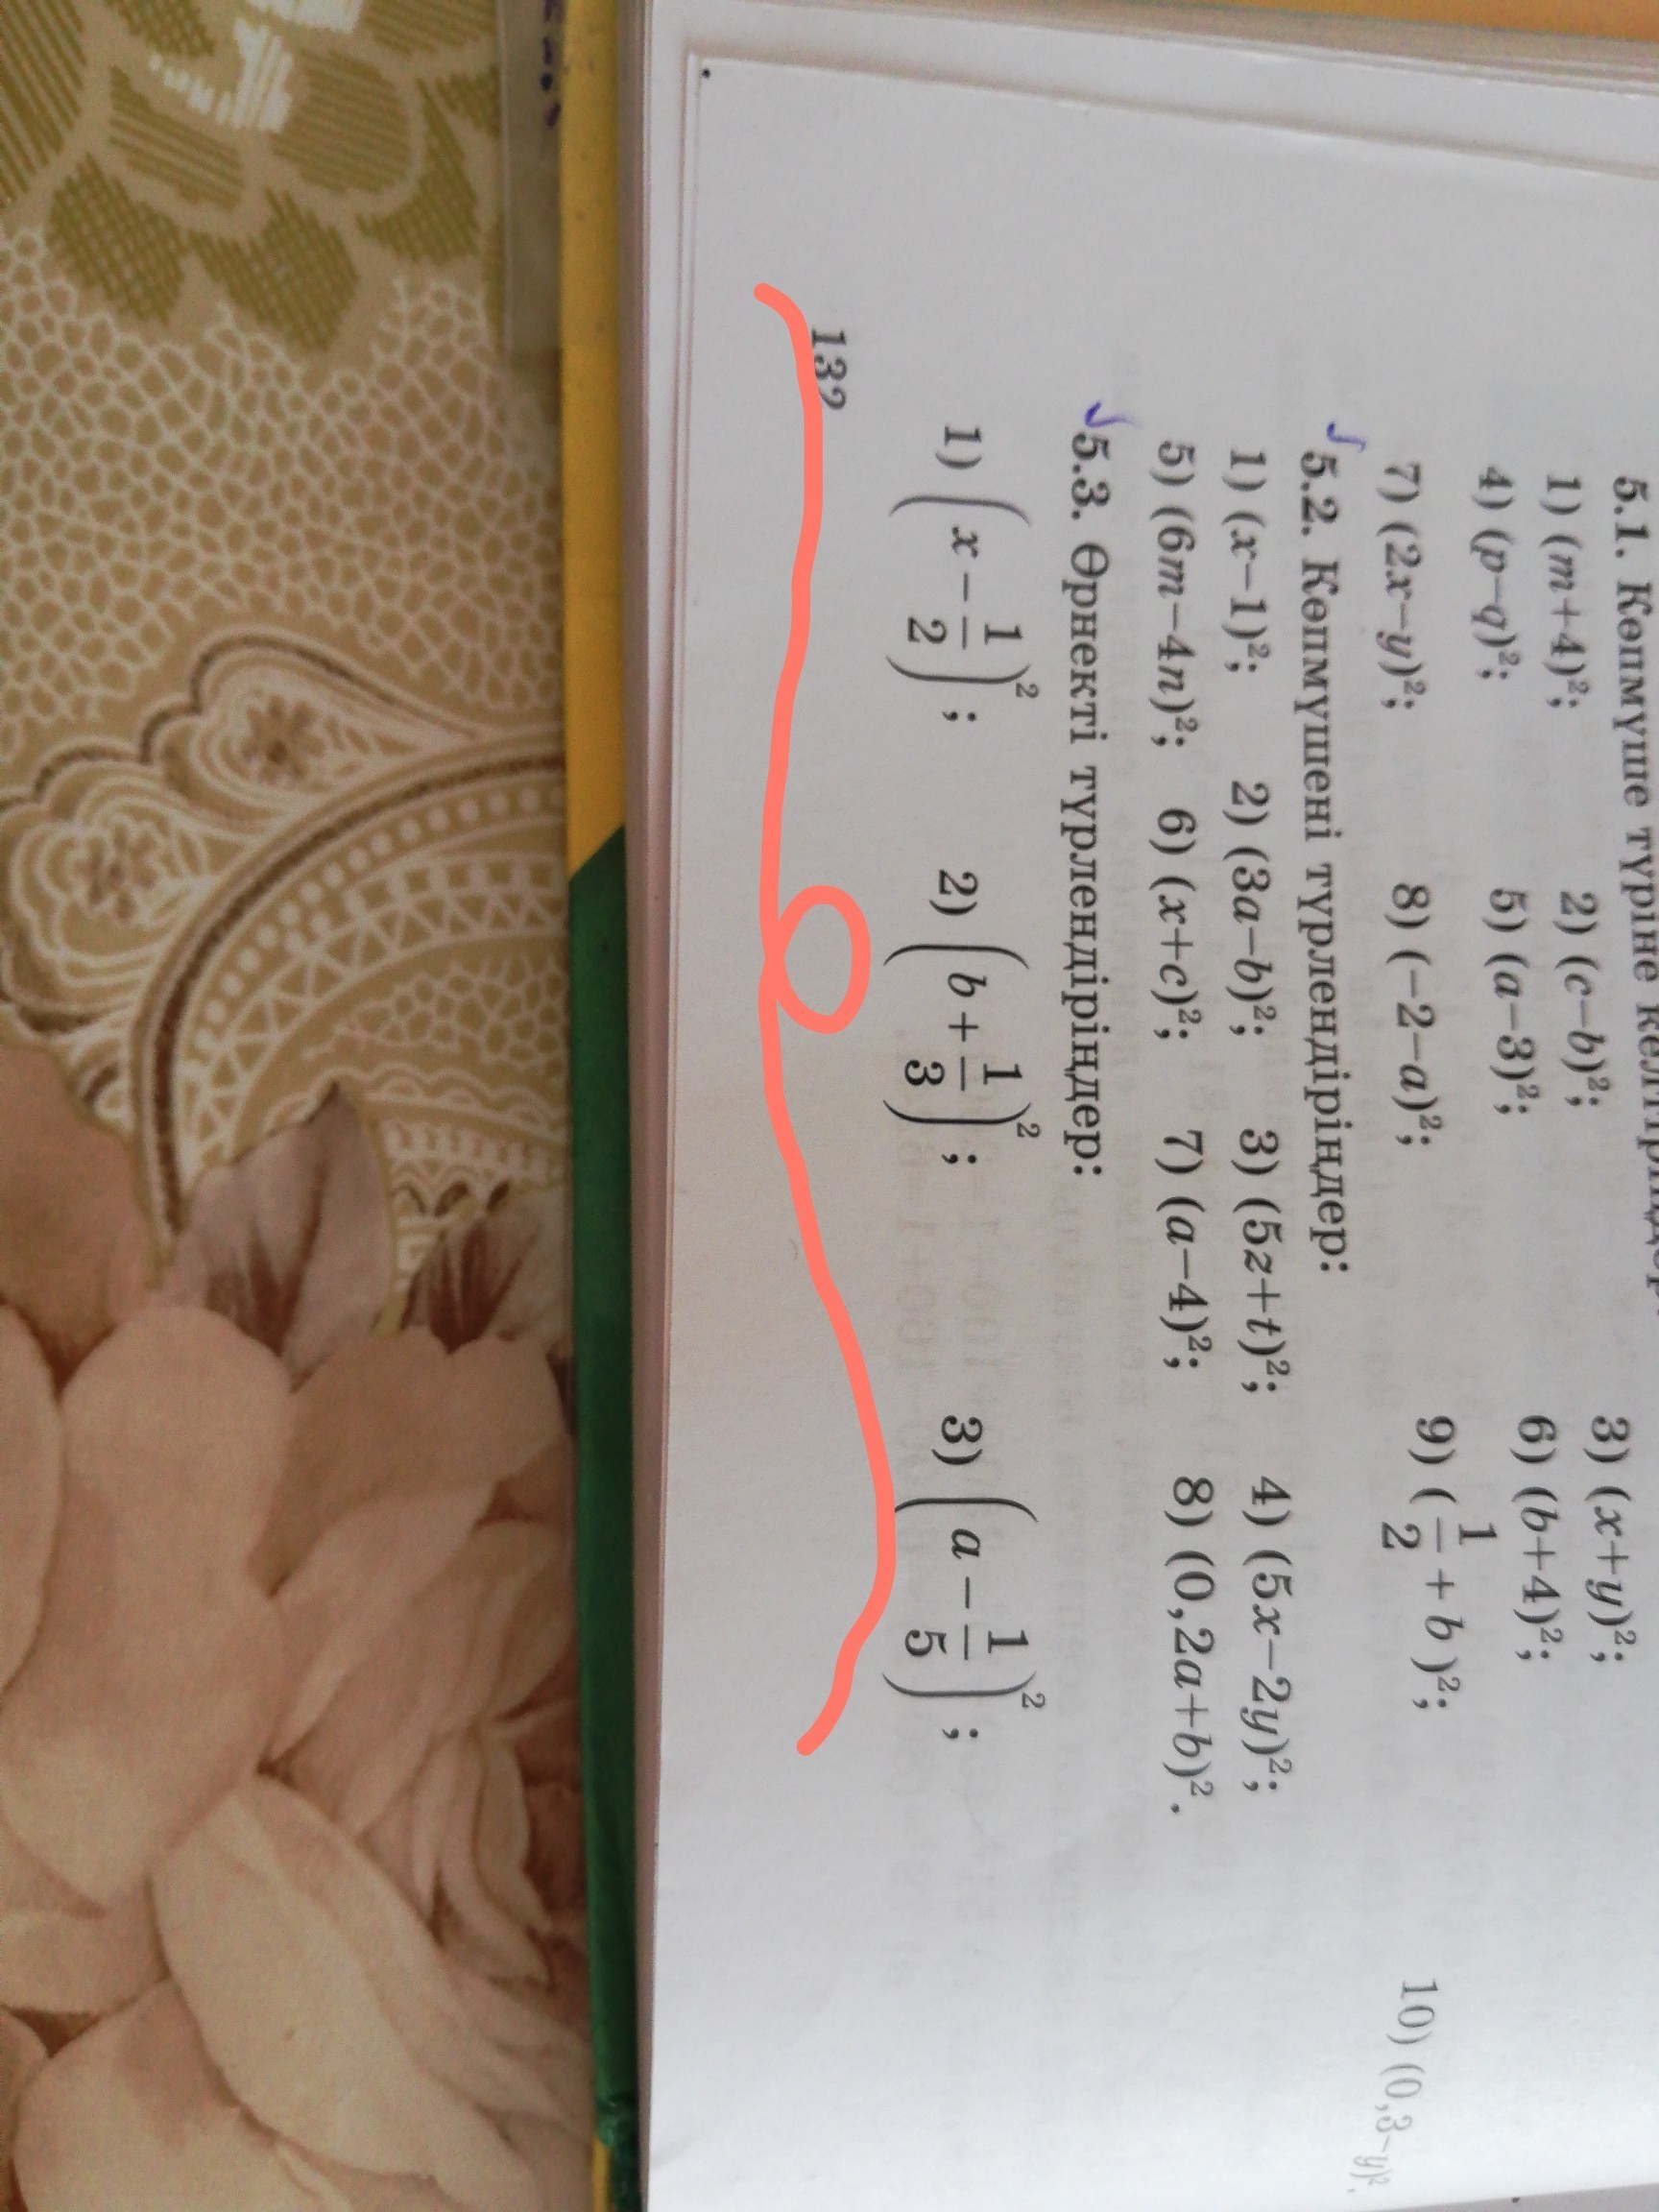 5.1. Көпмүше түріне келтіріңдер:
1) (m+4)²; 2) (c–b)²; 3) (x+y)²;
4) (p–q)²; 5) (a–3)²; 6) (b+4)²;
7) (2x–y)²; 8) (–2–a)²; 9) (1/2 + b)²; 10) (0,3–y)².
5.2. Көпмүшені түрлендіріңдер:
1) (x–1)²; 2) (3a–b)²; 3) (5z+t)²; 4) (5x–2y)²;
5) (6m–4n)²; 6) (x+c)²; 7) (a–4)²; 8) (0,2a+b)².
5.3. Өрнекті түрлендіріңдер:
1) (x – 1/2)²; 2) (b + 1/3)²; 3) (a – 1/5)²;
132